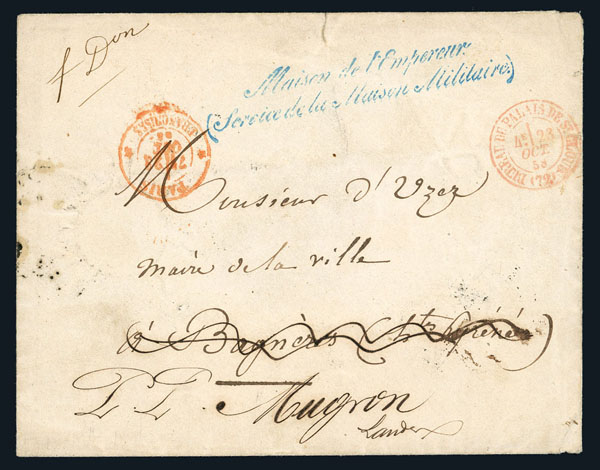 f Don
Maison de l'Empereur.
(Service de la Maison Militaire.)
PARIS
(FRANCHISE)
BUREAU DU PALAIS DE ST CLOUD
23
OCT
(72)
Monsieur d'Uzez
maire de la ville
à Bagnères (Htes Pyrénées)
P. P. Mugron
Landes